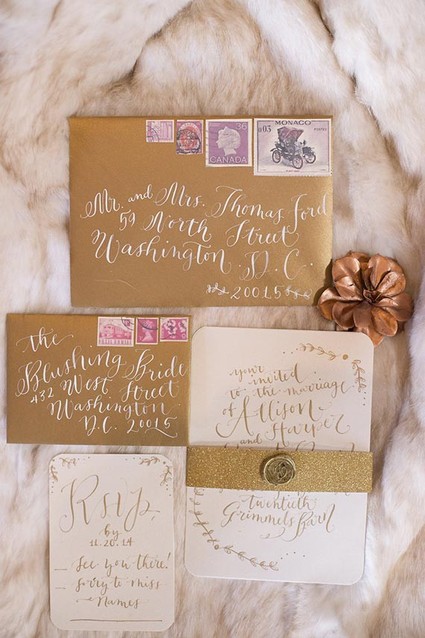 36
CANADA
MONACO
0,05
Mr. and Mrs. Thomas Ford
59 North Street
Washington D.C.
20015
the
Blushing Bride
432 West Street
Washington
D.C. 20015
your
invited
to the marriage
of Allison
and Harper
twentieth
Grimmels Barn
RSVP
by
11.20.14
See you there!
Sorry to miss
Names